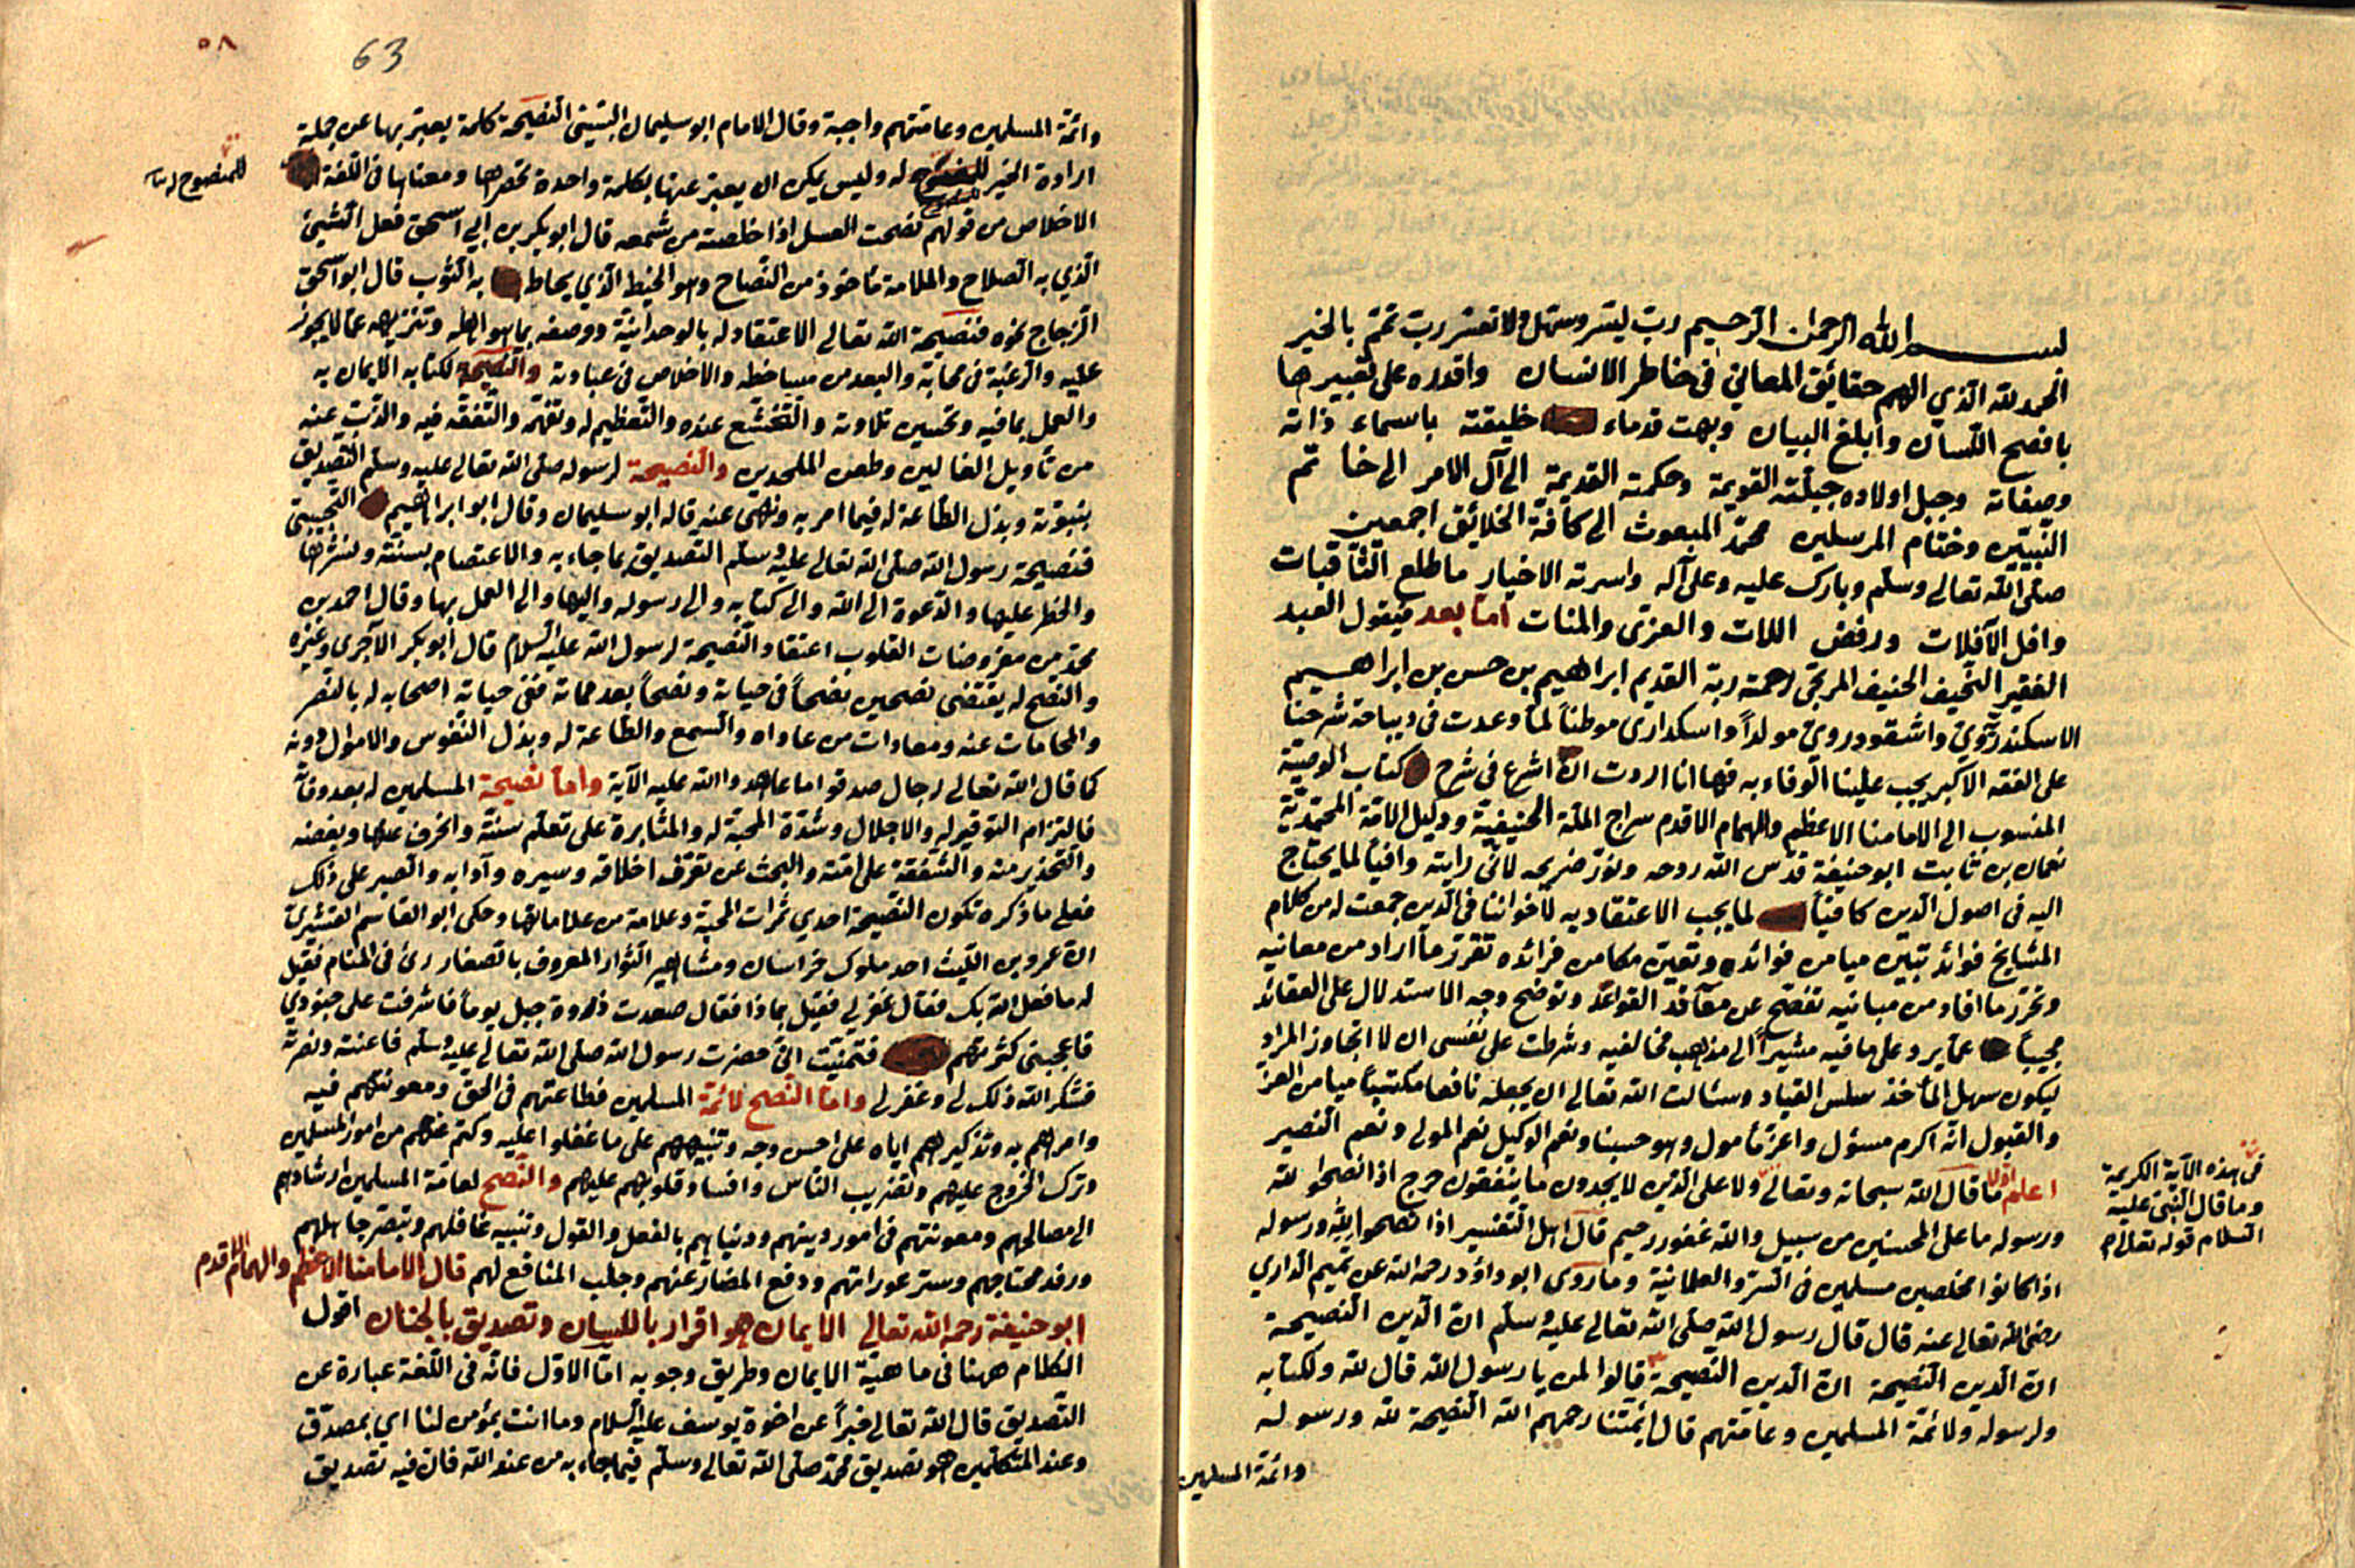 بسم الله الرحمن الرحيم رب يسر وسهل ولا تعسر رب تمم بالخير
الحمد لله الذي الهم حقايق المعاني في خاطر الانسان واقدره على تعبيرها
بافصح اللسان وابلغ البيان وبهت قدماء خليقته باسماء ذاته
وصفاته وجبل اولاده جبلته القويمة وحكمته القديمة الى آل الامر الى خاتم
النبيين وختام المرسلين محمد المبعوث الى كافة الخلائق اجمعين
صلى الله تعالى وسلم وبارك عليه وعلى آله واسرته الاخيار ما طلع الثاقبات
وافل الآفلات ورفض اللات والعزى والمنات اما بعد فيقول العبد
الفقير النحيف الحنيف المرتجى رحمة ربه القديم ابراهيم بن حسن بن ابراهيم
الاسكندري واشقودروي مولداً واسكدارى موطناً لما وعدت في ديباجة شرحنا
على الفقه الاكبر يجب علينا الوفاء به فها انا اردت ان اشرع في شرح كتاب الوصية
المنسوب الى الامامنا الاعظم والهمام الاقدم سراج الملة الحنيفية ودليل الامة المحمدية
نعمان بن ثابت ابو حنيفة قدس الله روحه ونور ضريحه لانى رايته وافياً لما يحتاج
اليه فى اصول الدين كافياً لما يجب الاعتقاد به لاخواننا فى الدين جمعت له من كلام
المشايخ فوائد تبين ميامن فوائده وتعين مكامن فرائده تقرر ما اراد من معانيه
وتحرر ما افاد من مبانيه تفصح عن معاقد القواعد وتوضح وجه الاستدلال على العقائد
مجيباً عما يرد على ما فيه مشيراً الى مذاهب مخالفيه وشرطت على نفسى ان لا اتجاوز المراد
ليكون سهل المأخذ سلس القياد وسئالت الله تعالى ان يجعله نافعا مكتسباً ميامن العز
والقبول انه اكرم مسئول واعز مأمول وهو حسبنا ونعم الوكيل نعم المولى ونعم النصير
اعلم اولا ما قال الله سبحانه وتعالى ولا على الذين لا يجدون ما ينفقون حرج اذا نصحوا لله
ورسوله ما على المحسنين من سبيل والله غفور رحيم قال اهل التفسير اذا نصحوا لله ورسوله
اذا كانوا مخلصين مسلمين فى السر والعلانية وما روى ابو داؤد رحمه الله عن تميم الدارى
رضى الله تعالى عنه قال قال رسول الله صلى الله تعالى عليه وسلم ان الدين النصيحة
ان الدين النصيحة ان الدين النصيحة قالوا لمن يا رسول الله قال لله ولكتابه
ولرسوله ولائمة المسلمين وعامتهم قال ائمتنا رحمهم الله النصيحة لله ورسوله
وائمة المسلمين
فى هذه الآية الكريمة
وما قال النبى عليه
السلام قوله تعالى
63
٥٨
وائمة المسلمين وعامتهم واجبة وقال الامام ابو سليمان البستى النصيحة كلمة يعبر بها عن جملة
ارادة الخير للمنصوح له وليس يمكن ان يعبر عنها بكلمة واحدة تحصرها ومعناها فى اللغة
للمنصوح له
الاخلاص من قولهم نصحت العسل اذا خلصته من شمعه قال ابو بكر بن ابى اسحق فعل الشيئ
الذي به الصلاح والملامة مأخوذ من النصاح وهو الخيط الذي يخاط به الثوب قال ابو اسحق
الزجاج نحوه فنصيحة الله تعالى الاعتقاد له بالوحدانية ووصفه بما هو اهله وتنزيهه عما لا يجوز
عليه والرغبة فى محابه والبعد من مساخطه والاخلاص فى عبادته والنصيحة لكتابه الايمان به
والعمل بما فيه وتحسين تلاوته والتخشع عنده والتعظيم له وتفهم والتفقه فيه والذب عنه
من تأويل الغالين وطعن الملحدين والنصيحة لرسوله صلى الله تعالى عليه وسلم التصديق
بنبوته وبذل الطاعة له فيما امر به ونهى عنه قاله ابو سليمان وقال ابو ابراهيم التجيبى
فنصيحة رسول الله صلى الله تعالى عليه وسلم التصديق بما جاء به والاعتصام بسنته ونشرها
والحظر عليها والدعوة الى الله والى كتابه والى رسوله واليها والى العمل بها وقال احمد بن
محمد من مفروضات القلوب اعتقاد النصيحة لرسول الله عليه السلام قال ابو بكر الآجرى وغيره
والنصح له يقتضى نصحين نصحاً فى حياته ونصحاً بعد مماته ففى حياته اصحابه له بالنصر
والمحامات عنه ومعادات من عاداه والسمع والطاعة له وبذل النفوس والاموال دونه
كما قال الله تعالى رجال صدقوا ما عاهدوا الله عليه الآية واما نصيحة المسلمين له بعد وفاته
فالتزام التوقير له والاجلال وشدة المحبة له والمثابرة على تعلم سنته وانحرف عنها وبغضه
والتحذير منه والشفقة على امته والبحث عن تعرف اخلاقه وسيره وآدابه والصبر على ذلك
فعلى ما ذكره تكون النصيحة احدي ثمرات المحبة وعلامة من علاماتها وحكى ابو القاسم القشيرى
ان عمرو بن الليث احد ملوك خراسان ومشاهير الثوار المعروف بالصفار رئى فى المنام فقيل
له ما فعل الله بك فقال غفر لى فقيل بماذا فقال صعدت ذروة جبل يوماً فاشرفت على جنودي
فاعجبنى كثرتهم فتمنيت انى حضرت رسول الله صلى الله تعالى عليه وسلم فاعنته ونصرته
فشكر الله ذلك لى وغفر لى واما النصح لائمة المسلمين فطاعتهم فى الحق ومعونتهم فيه
وامرهم به وتذكيرهم اياه على احسن وجه وتنبيههم على ما غفلوا عليه وكتم عنهم من امور المسلمين
وترك الخروج عليهم وتضريب الناس وافساد قلوبهم عليهم والنصح لعامة المسلمين ارشادهم
الى مصالحهم ومعونتهم فى امور دينهم ودنياهم بالفعل والقول وتنبيه غافلهم وتبصر جاهلهم
ورفد محتاجهم وستر عوراتهم ودفع المضار عنهم وجلب المنافع لهم قال الامامنا الاعظم والهمام الاقدم
ابو حنيفة رحمه الله تعالى الايمان هو اقرار باللسان وتصديق بالجنان اقول
الكلام ههنا فى ماهية الايمان وطريق وجوبه اما الاول فانه فى اللغة عبارة عن
التصديق قال الله تعالى خبراً عن اخوة يوسف عليه السلام وما انت بمؤمن لنا اي بمصدق
وعند المتكلمين هو تصديق محمد صلى الله تعالى وسلم فيما جاء به من عند الله فان فيه تصديق